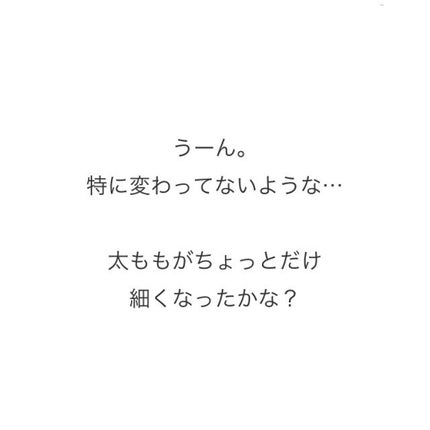 うーん。
特に変わってないような…
太ももがちょっとだけ
細くなったかな？